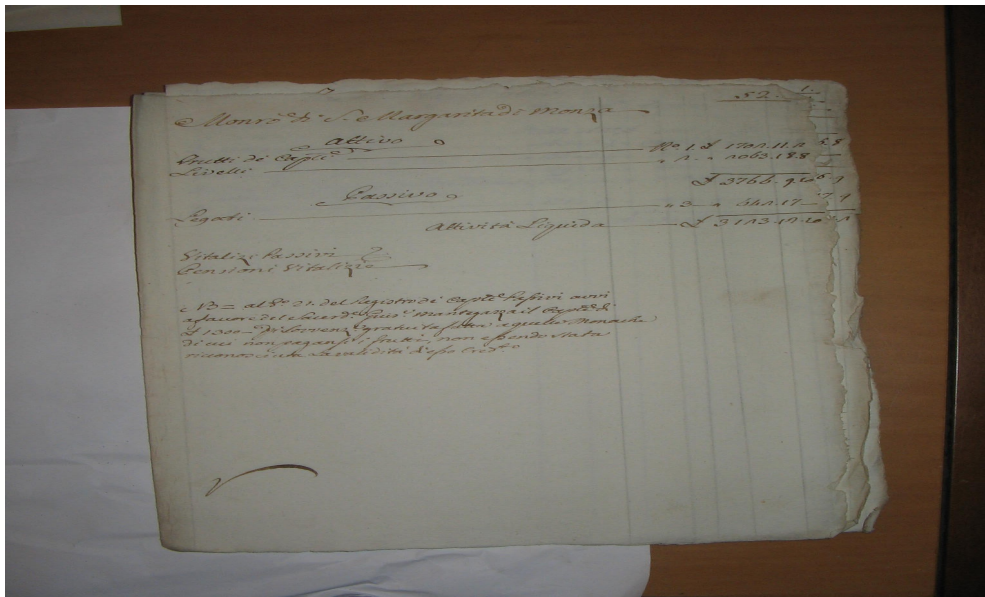 52. 1.
Monrò di S. Margarita di Monza
Attivo
Frutti de Capli N.o 1. £ 1702.11.2
Livelli " 2. " 2063.18.8
£ 3766. 9.10
Passivo
Legati " 3 " 642.17
Attività Liquida £ 3123.12.10
Vitalizi Passivi
Pensioni Vitalizie
NB = al N.o 21. del Registro de Capli Passivi avvi
a favore del Mantegazza il Caple di
£ 1300 = di Sovvenz.e gratuita fatta a quelle Monache
di cui non pagansi i frutti, non essendo stata
riconosciuta la validità d'esso Cred.o